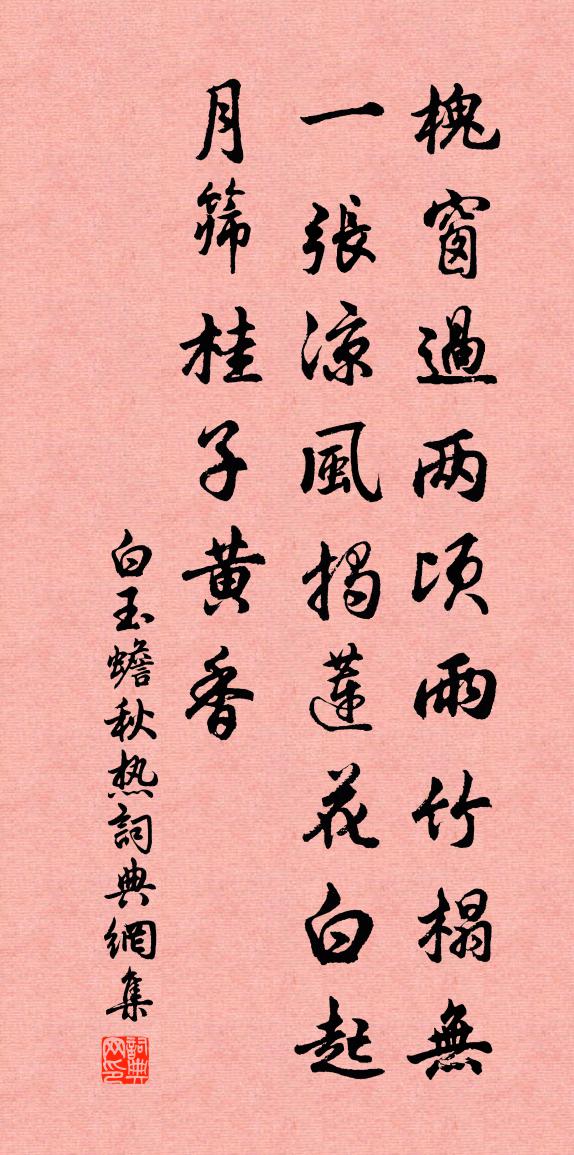 槐窗過两頃雨竹榻無
一張涼風揭蓮花白起
月篩桂子黄香
白玉蟾秋热詞典網集
詞典网印